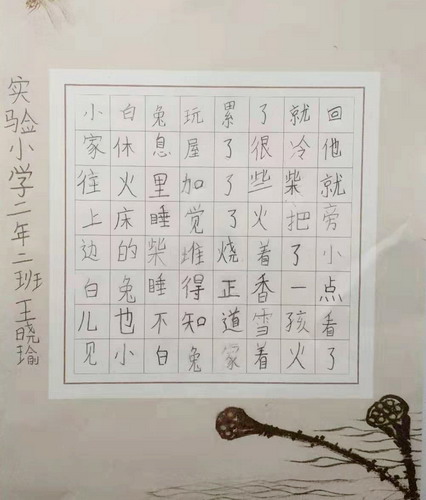 实验小学二年二班王晓瑜
小白兔玩累了就回
家休息屋了很冷他
往火里加了些柴就
上床睡觉了火把旁
边的柴堆烧着了小
白兔睡得正香一点
儿也不知道雪孩看
见小白兔家着火了